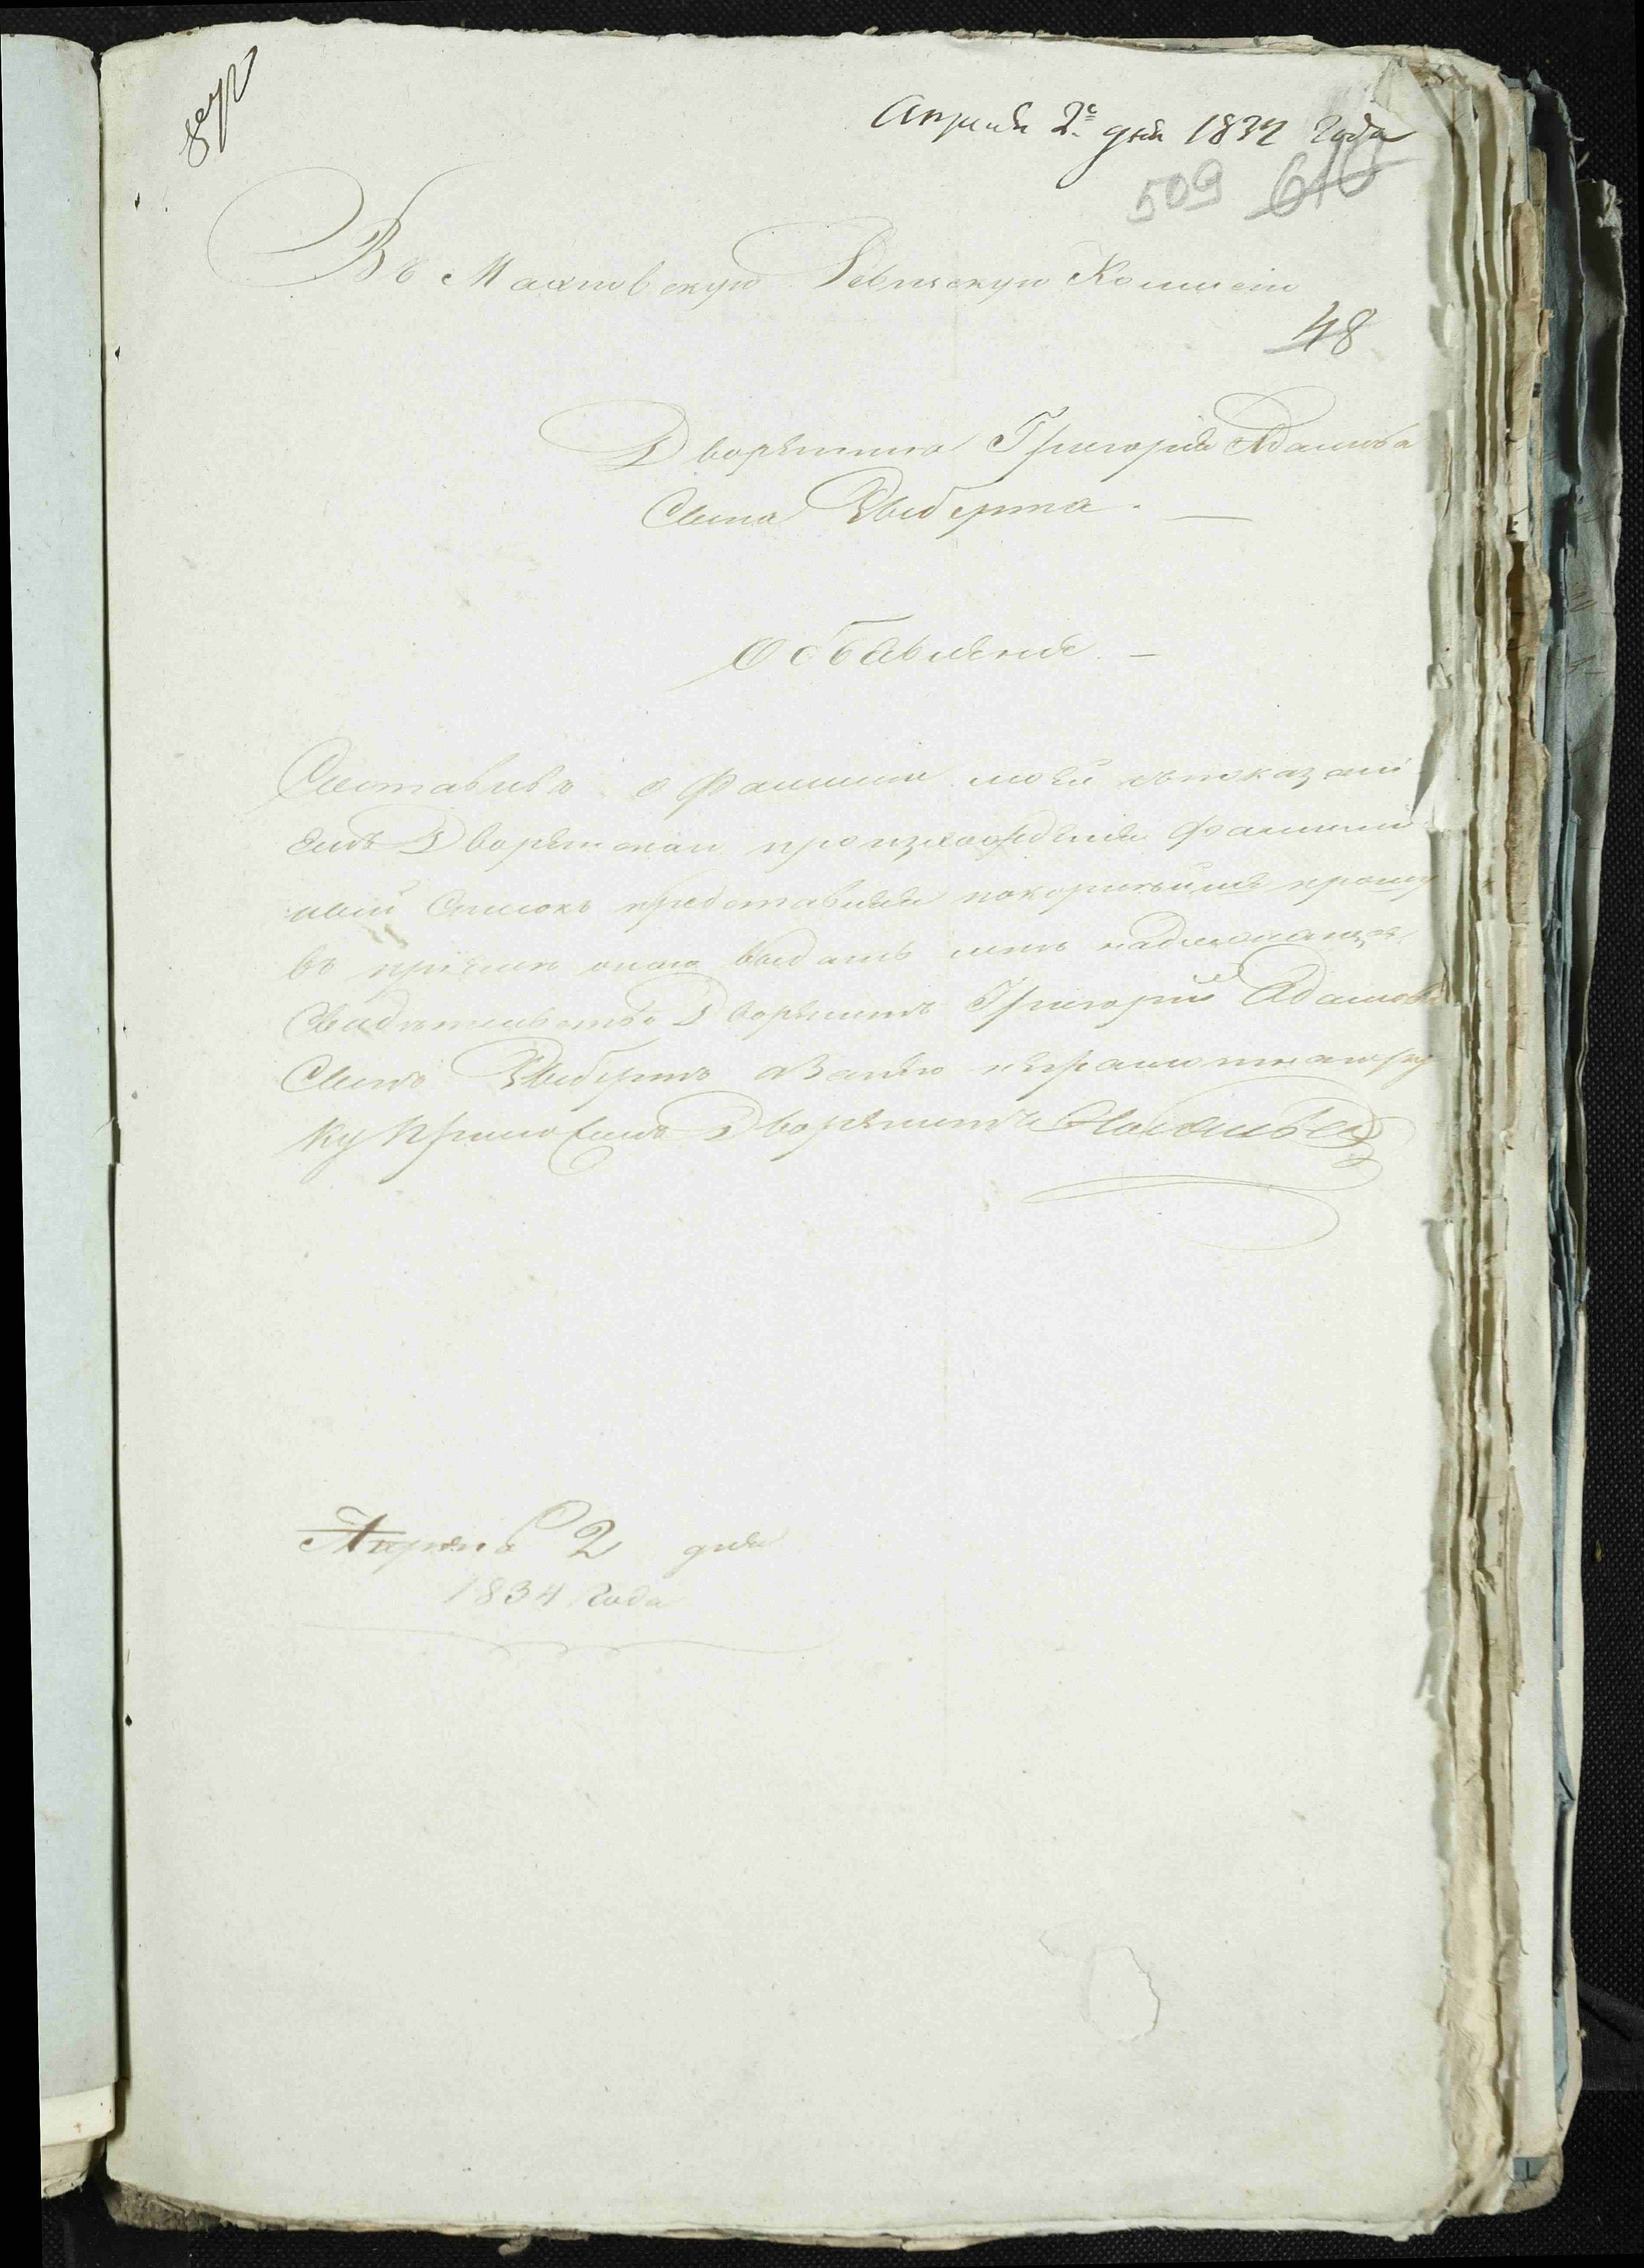 Апреля 2го дня 1834 Года
509 610
Въ Махновскую Ревизскую Комисію
48
Дворянина Григорія Адамова
Сына Эйберта.
Объявленіе
Составивъ о фамиліи моей съ показані
емъ Дворянскаго происхожденія фамиль
ный Списокъ представляя покорнѣйше прошу
въ пріемѣ онаго выдать мнѣ надлежащее
Свидѣтельство Дворянинъ Григорій Адамовъ
Сынъ а занего неграмотнаго ру
ку приложилъ Дворянинъ
Апреля 2 дня
1834 Года